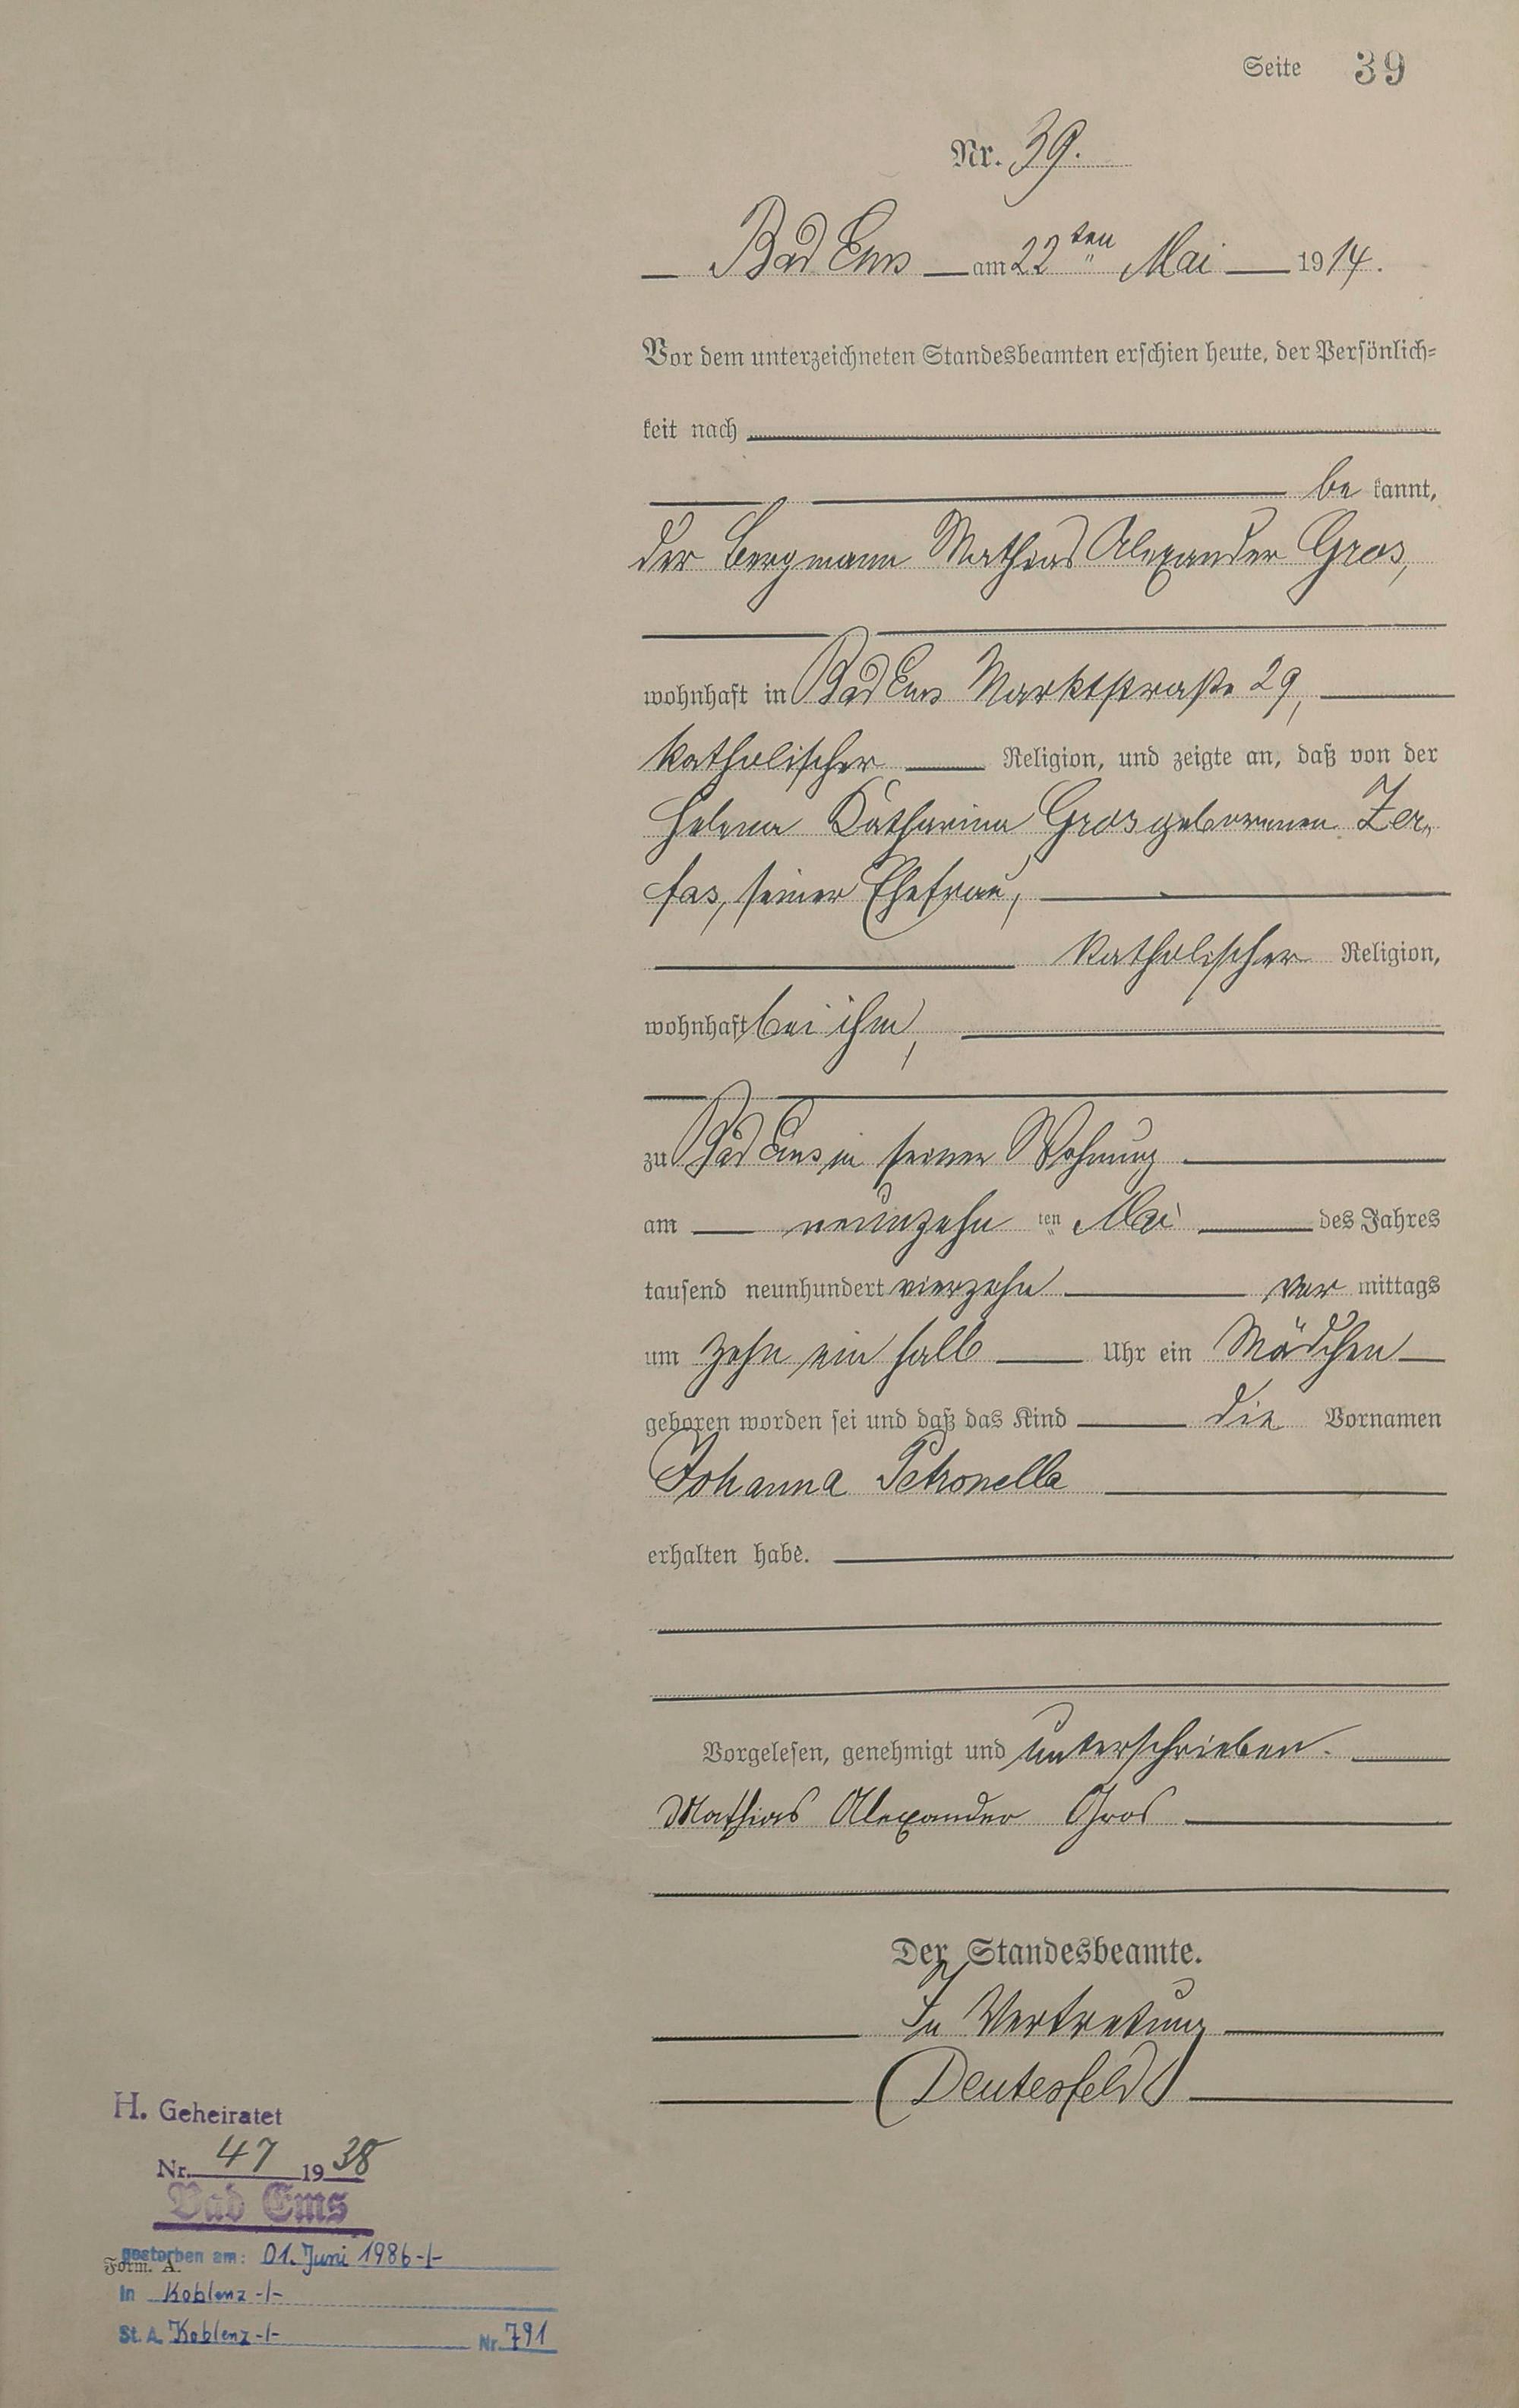 Seite 39
Nr. 39.
Bad Ems am 22ten Mai 1914.
Vor dem unterzeichneten Standesbeamten erschien heute, der Persönlich-
keit nach
be kannt,
der Bergmann Mathias Alexander Gros,
wohnhaft in Bad Ems Marktstraße 29,
katholischer Religion, und zeigte an, daß von der
Helena Katharina Gros geborenen Zer-
fas, seiner Ehefrau,
katholischer Religion,
wohnhaft bei ihm,
zu Bad Ems in seiner Wohnung
am neunzehn ten Mai des Jahres
tausend neunhundert vierzehn vor mittags
um zehn ein halb Uhr ein Mädchen
geboren worden sei und daß das Kind die Vornamen
Johanna Petronella
erhalten habe.
Vorgelesen, genehmigt und unterschrieben.
Mathias Alexander Gros
Der Standesbeamte.
In Vertretung
Deutesfeld
H. Geheiratet
Nr. 47 1938
Bad Ems
gestorben am: 01. Juni 1986 -/-
Form. A.
in Koblenz -/-
St. A. Koblenz -/- Nr. 791